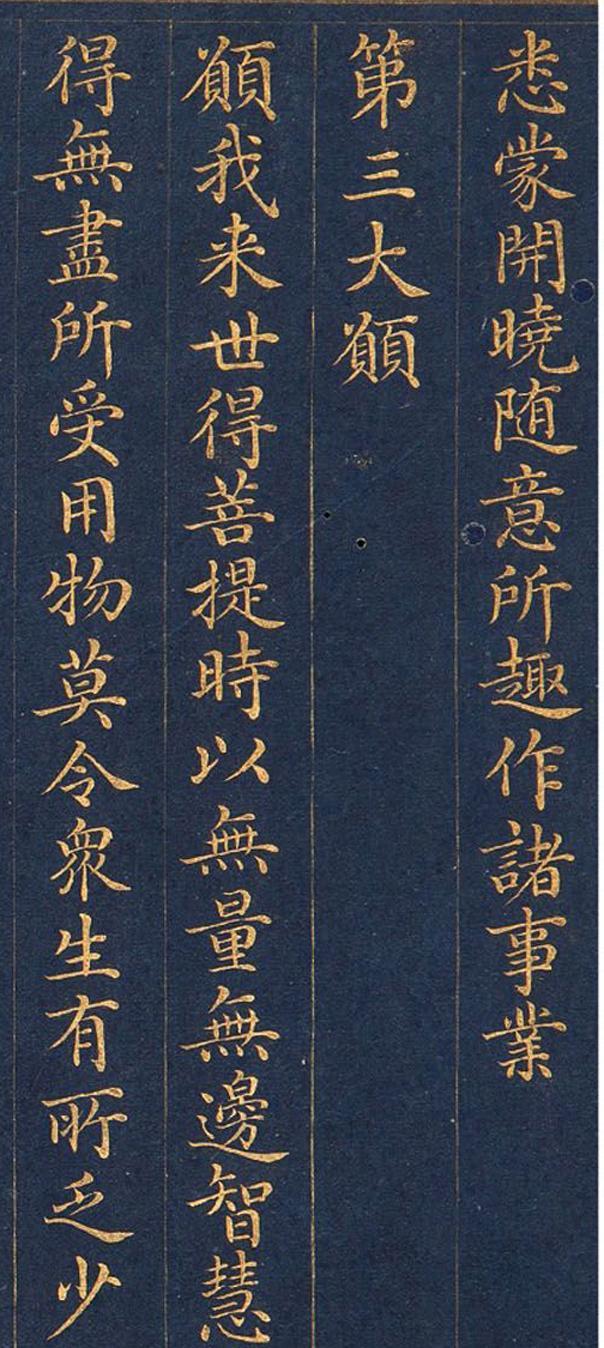 悉蒙開曉随意所趣作諸事業
第三大願
願我来世得菩提時以無量無邊智慧
得無盡所受用物莫令衆生有所乏少